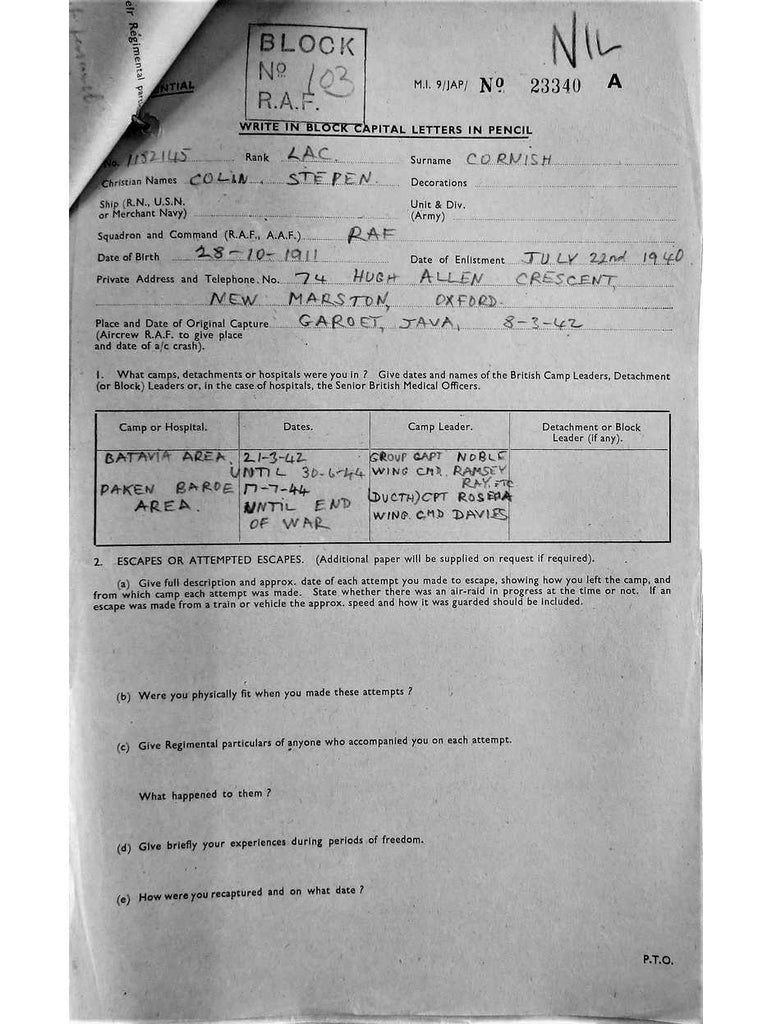 eir Regimental par
NTIAL
BLOCK
Nº 103
R.A.F.
NIL
M.I. 9/JAP/ Nº 23340 A
WRITE IN BLOCK CAPITAL LETTERS IN PENCIL
No. 1152145 Rank LAC. Surname CORNISH
Christian Names COLIN. STEPEN. Decorations
Ship (R.N., U.S.N. or Merchant Navy) Unit & Div. (Army)
Squadron and Command (R.A.F., A.A.F.) RAF
Date of Birth 28-10-1911 Date of Enlistment JULY 22nd 1940.
Private Address and Telephone No. 74 HUGH ALLEN CRESCENT,
NEW MARSTON, OXFORD.
Place and Date of Original Capture GAROET, JAVA, 8-3-42
(Aircrew R.A.F. to give place
and date of a/c crash).
1. What camps, detachments or hospitals were you in ? Give dates and names of the British Camp Leaders, Detachment
(or Block) Leaders or, in the case of hospitals, the Senior British Medical Officers.
Camp or Hospital. Dates. Camp Leader. Detachment or Block
Leader (if any).
BATAVIA AREA. 21-3-42 GROUP CAPT NOBLE
UNTIL 30-6-44 WING CMR. RAMSEY
RAY. ETC
PAKEN BAROE 17-7-44 (DUCTH) CPT ROSEMA
AREA. UNTIL END WING. CMD DAVIES
OF WAR
2. ESCAPES OR ATTEMPTED ESCAPES. (Additional paper will be supplied on request if required).
(a) Give full description and approx. date of each attempt you made to escape, showing how you left the camp, and
from which camp each attempt was made. State whether there was an air-raid in progress at the time or not. If an
escape was made from a train or vehicle the approx. speed and how it was guarded should be included.
(b) Were you physically fit when you made these attempts ?
(c) Give Regimental particulars of anyone who accompanied you on each attempt.
What happened to them ?
(d) Give briefly your experiences during periods of freedom.
(e) How were you recaptured and on what date ?
P.T.O.